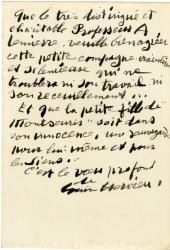 Que le très distingué et
charitable Professeur A.
Lemierre veuille bien agréer
cette petite compagne
et silencieuse qui ne
troublera ni son travail ni
son recueillement...
Et que la petite fille de
"Montsouris" soit dans
son innocence, une sauvegarde
pour lui-même et pour
les siens..
C'est le vœu profond
de